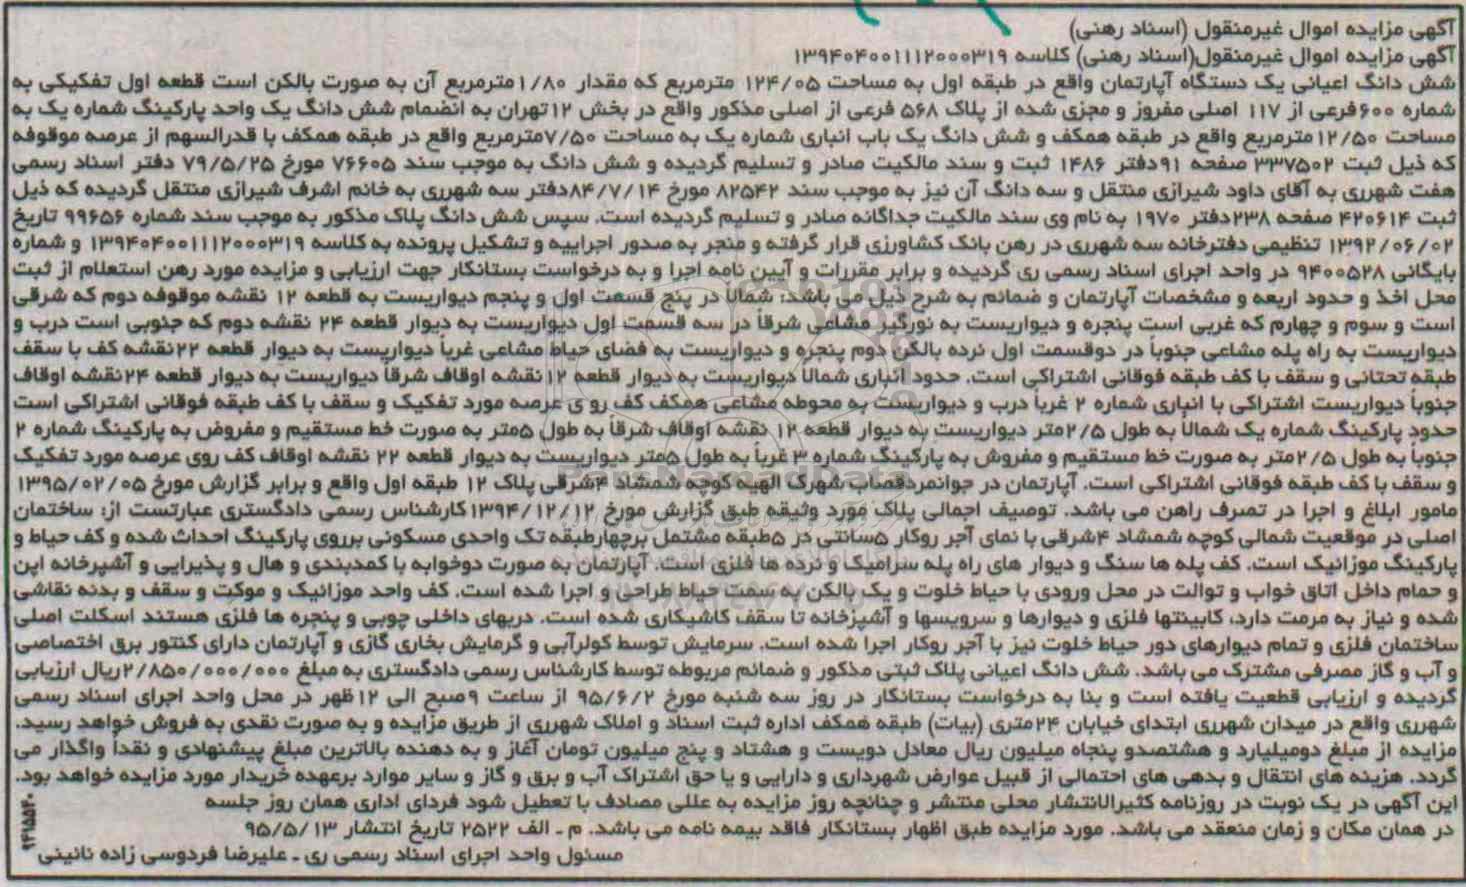 آگهی مزایده اموال غیرمنقول (اسناد رهنی)
آگهی مزایده اموال غیرمنقول(اسناد رهنی) کلاسه ۱۳۹۴۰۴۰۰۱۱۱۲۰۰۰۳۱۹
شش دانگ اعیانی یک دستگاه آپارتمان واقع در طبقه اول به مساحت ۱۲۴/۰۵ مترمربع که مقدار ۱/۸۰مترمربع آن به صورت بالکن است قطعه اول تفکیکی به
شماره ۶۰۰فرعی از ۱۱۷ اصلی مفروز و مجزی شده از پلاک ۵۶۸ فرعی از اصلی مذکور واقع در بخش ۱۲تهران به انضمام شش دانگ یک واحد پارکینگ شماره یک به
مساحت ۱۲/۵۰مترمربع واقع در طبقه همکف و شش دانگ یک باب انباری شماره یک به مساحت ۷/۵۰مترمربع واقع در طبقه همکف با قدرالسهم از عرصه موقوفه
که ذیل ثبت ۳۳۷۵۰۲ صفحه ۹۱دفتر ۱۴۸۶ ثبت و سند مالکیت صادر و تسلیم گردیده و شش دانگ به موجب سند ۷۶۶۰۵ مورخ ۷۹/۵/۲۵ دفتر اسناد رسمی
هفت شهرری به آقای داود شیرازی منتقل و سه دانگ آن نیز به موجب سند ۸۲۵۴۲ مورخ ۸۴/۷/۱۴دفتر سه شهرری به خانم اشرف شیرازی منتقل گردیده که ذیل
ثبت ۴۲۰۶۱۴ صفحه ۲۳۸دفتر ۱۹۷۰ به نام وی سند مالکیت جداگانه صادر و تسلیم گردیده است. سپس شش دانگ پلاک مذکور به موجب سند شماره ۹۹۶۵۶ تاریخ
۱۳۹۲/۰۶/۰۲ تنظیمی دفترخانه سه شهرری در رهن بانک کشاورزی قرار گرفته و منجر به صدور اجراییه و تشکیل پرونده به کلاسه ۱۳۹۴۰۴۰۰۱۱۱۲۰۰۰۳۱۹ و شماره
بایگانی ۹۴۰۰۵۲۸ در واحد اجرای اسناد رسمی ری گردیده و برابر مقررات و آیین نامه اجرا و به درخواست بستانکار جهت ارزیابی و مزایده مورد رهن استعلام از ثبت
محل اخذ و حدود اربعه و مشخصات آپارتمان و ضمائم به شرح ذیل می باشد: شمالاً در پنج قسمت اول و پنجم دیواریست به قطعه ۱۲ نقشه موقوفه دوم که شرقی
است و سوم و چهارم که غربی است پنجره و دیواریست به نورگیر مشاعی شرقاً در سه قسمت اول دیواریست به دیوار قطعه ۲۴ نقشه دوم که جنوبی است درب و
دیواریست به راه پله مشاعی جنوباً در دوقسمت اول نرده بالکن دوم پنجره و دیواریست به فضای حیاط مشاعی غرباً دیواریست به دیوار قطعه ۲۲نقشه کف با سقف
طبقه تحتانی و سقف با کف طبقه فوقانی اشتراکی است. حدود انباری شمالاً دیواریست به دیوار قطعه ۱۲نقشه اوقاف شرقاً دیواریست به دیوار قطعه ۲۴نقشه اوقاف
جنوباً دیواریست اشتراکی با انباری شماره ۲ غرباً درب و دیواریست به محوطه مشاعی همکف کف رو ی عرصه مورد تفکیک و سقف با کف طبقه فوقانی اشتراکی است
حدود پارکینگ شماره یک شمالاً به طول ۲/۵متر دیواریست به دیوار قطعه ۱۲ نقشه اوقاف شرقاً به طول ۵متر به صورت خط مستقیم و مفروض به پارکینگ شماره ۲
جنوباً به طول ۲/۵متر به صورت خط مستقیم و مفروش به پارکینگ شماره ۳ غرباً به طول ۵متر دیواریست به دیوار قطعه ۲۲ نقشه اوقاف کف روی عرصه مورد تفکیک
و سقف با کف طبقه فوقانی اشتراکی است. آپارتمان در جوانمردقصاب شهرک الهیه کوچه شمشاد ۴شرقی پلاک ۱۲ طبقه اول واقع و برابر گزارش مورخ ۱۳۹۵/۰۲/۰۵
مامور ابلاغ و اجرا در تصرف راهن می باشد. توصیف اجمالی پلاک مورد وثیقه طبق گزارش مورخ ۱۳۹۴/۱۲/۱۲کارشناس رسمی دادگستری عبارتست از: ساختمان
اصلی در موقعیت شمالی کوچه شمشاد ۴شرقی با نمای آجر روکار ۵سانتی در ۵طبقه مشتمل برچهارطبقه تک واحدی مسکونی برروی پارکینگ احداث شده و کف حیاط و
پارکینگ موزائیک است. کف پله ها سنگ و دیوار های راه پله سرامیک و نرده ها فلزی است. آپارتمان به صورت دوخوابه با کمدبندی و هال و پذیرایی و آشپرخانه اپن
و حمام داخل اتاق خواب و توالت در محل ورودی با حیاط خلوت و یک بالکن به سمت حیاط طراحی و اجرا شده است. کف واحد موزائیک و موکت و سقف و بدنه نقاشی
شده و نیاز به مرمت دارد، کابینتها فلزی و دیوارها و سرویسها و آشپزخانه تا سقف کاشیکاری شده است. دربهای داخلی چوبی و پنجره ها فلزی هستند اسکلت اصلی
ساختمان فلزی و تمام دیوارهای دور حیاط خلوت نیز با آجر روکار اجرا شده است. سرمایش توسط کولرآبی و گرمایش بخاری گازی و آپارتمان دارای کنتور برق اختصاصی
و آب و گاز مصرفی مشترک می باشد. شش دانگ اعیانی پلاک ثبتی مذکور و ضمائم مربوطه توسط کارشناس رسمی دادگستری به مبلغ ۲/۸۵۰/۰۰۰/۰۰۰ریال ارزیابی
گردیده و ارزیابی قطعیت یافته است و بنا به درخواست بستانکار در روز سه شنبه مورخ ۹۵/۶/۲ از ساعت ۹صبح الی ۱۲ظهر در محل واحد اجرای اسناد رسمی
شهرری واقع در میدان شهرری ابتدای خیابان ۲۴متری (بیات) طبقه همکف اداره ثبت اسناد و املاک شهرری از طریق مزایده و به صورت نقدی به فروش خواهد رسید.
مزایده از مبلغ دومیلیارد و هشتصدو پنجاه میلیون ریال معادل دویست و هشتاد و پنج میلیون تومان آغاز و به دهنده بالاترین مبلغ پیشنهادی و نقداً واگذار می
گردد. هزینه های انتقال و بدهی های احتمالی از قبیل عوارض شهرداری و دارایی و یا حق اشتراک آب و برق و گاز و سایر موارد برعهده خریدار مورد مزایده خواهد بود.
این آگهی در یک نوبت در روزنامه کثیرالانتشار محلی منتشر و چنانچه روز مزایده به عللی مصادف با تعطیل شود فردای اداری همان روز جلسه
در همان مکان و زمان منعقد می باشد. مورد مزایده طبق اظهار بستانکار فاقد بیمه نامه می باشد. م ـ الف ۲۵۲۲ تاریخ انتشار ۹۵/۵/۱۳
مسئول واحد اجرای اسناد رسمی ری ـ علیرضا فردوسی زاده نائینی
ParsNamadData